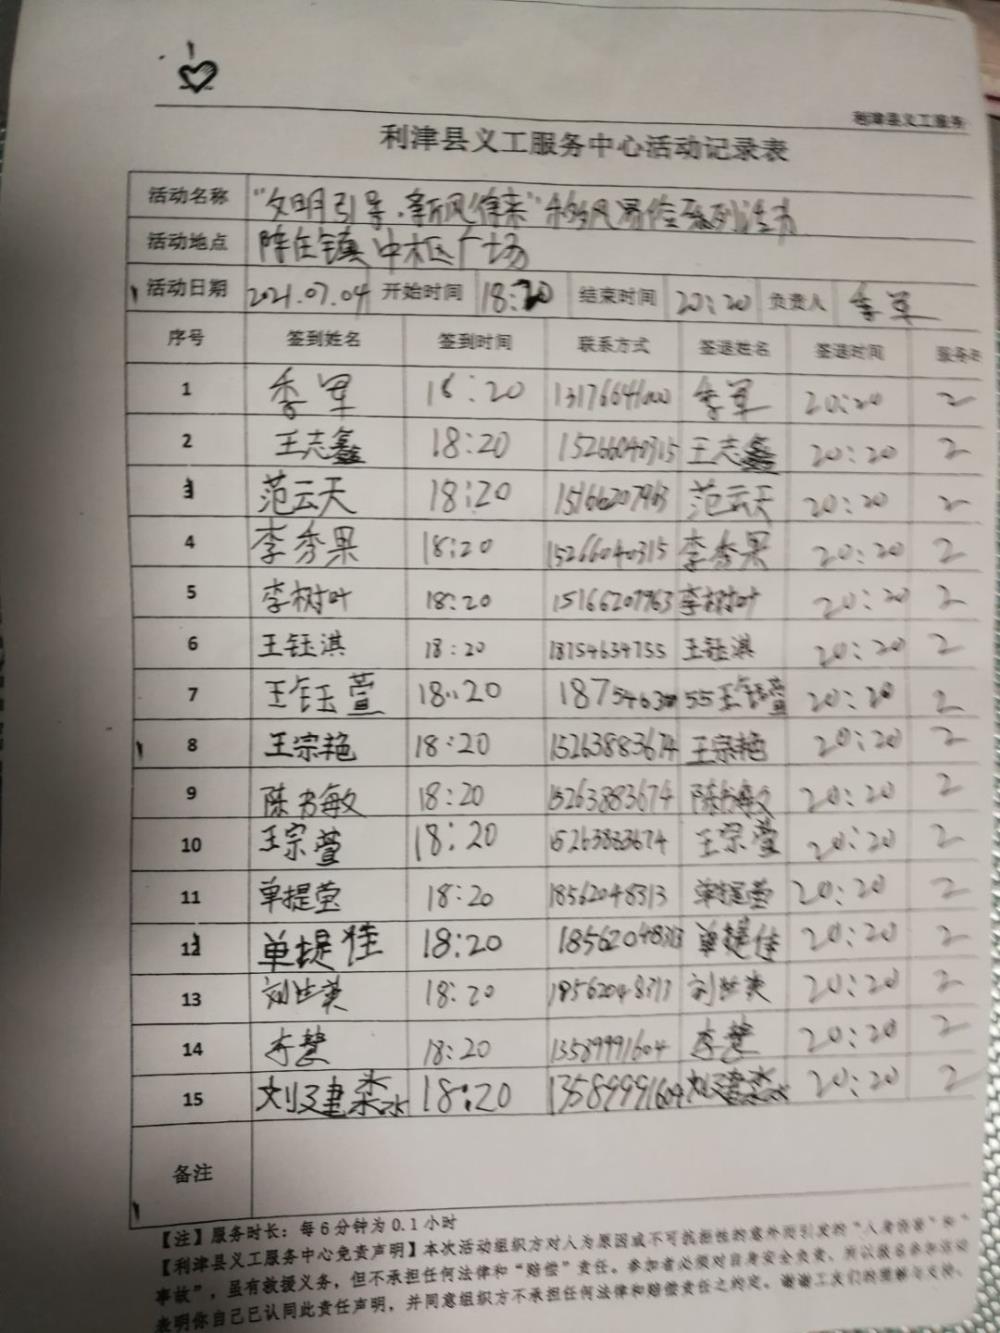 利津县义工服务
利津县义工服务中心活动记录表
活动名称 "文明引导·新风徐来"移风易俗系列活动
活动地点 陈庄镇中枢广场
活动日期 2021.07.04 开始时间 18:20 结束时间 20:20 负责人 李军
序号 签到姓名 签到时间 联系方式 签退姓名 签退时间 服务
1 李军 18:20 李军 20:20 2
2 王志鑫 18:20 15266040315 王志鑫 20:20 2
3 范云天 18:20 15166207963 范云天 20:20 2
4 李秀果 18:20 15266040315 李秀果 20:20 2
5 李树叶 18:20 15166207963 李树叶 20:20 2
6 王钰淇 18:20 18754634755 王钰淇 20:20 2
7 王钰萱 18:20 王钰萱 20:20 2
8 王宗艳 18:20 15263883674 王宗艳 20:20 2
9 陈书敏 18:20 15263883674 陈书敏 20:20 2
10 王宗萱 18:20 15263883674 王宗萱 20:20 2
11 单提莹 18:20 18562048313 单提莹 20:20 2
12 单提佳 18:20 18562048313 单提佳 20:20 2
13 刘世英 18:20 18562048313 刘世英 20:20 2
14 李慧 18:20 13589991604 李慧 20:20 2
15 刘建淼 18:20 13589991604 刘建淼 20:20 2
备注
【注】服务时长：每6分钟为0.1小时
【利津县义工服务中心免责声明】本次活动组织方对人为原因或不可抗拒性的意外而引发的"人身伤害"和"
事故"，虽有救援义务，但不承担任何法律和"赔偿"责任。参加者必须对自身安全负责，所以报名参加活动
表明你自己已认同此责任声明，并同意组织方不承担任何法律和赔偿责任之约定。谢谢工友们的理解与支持。